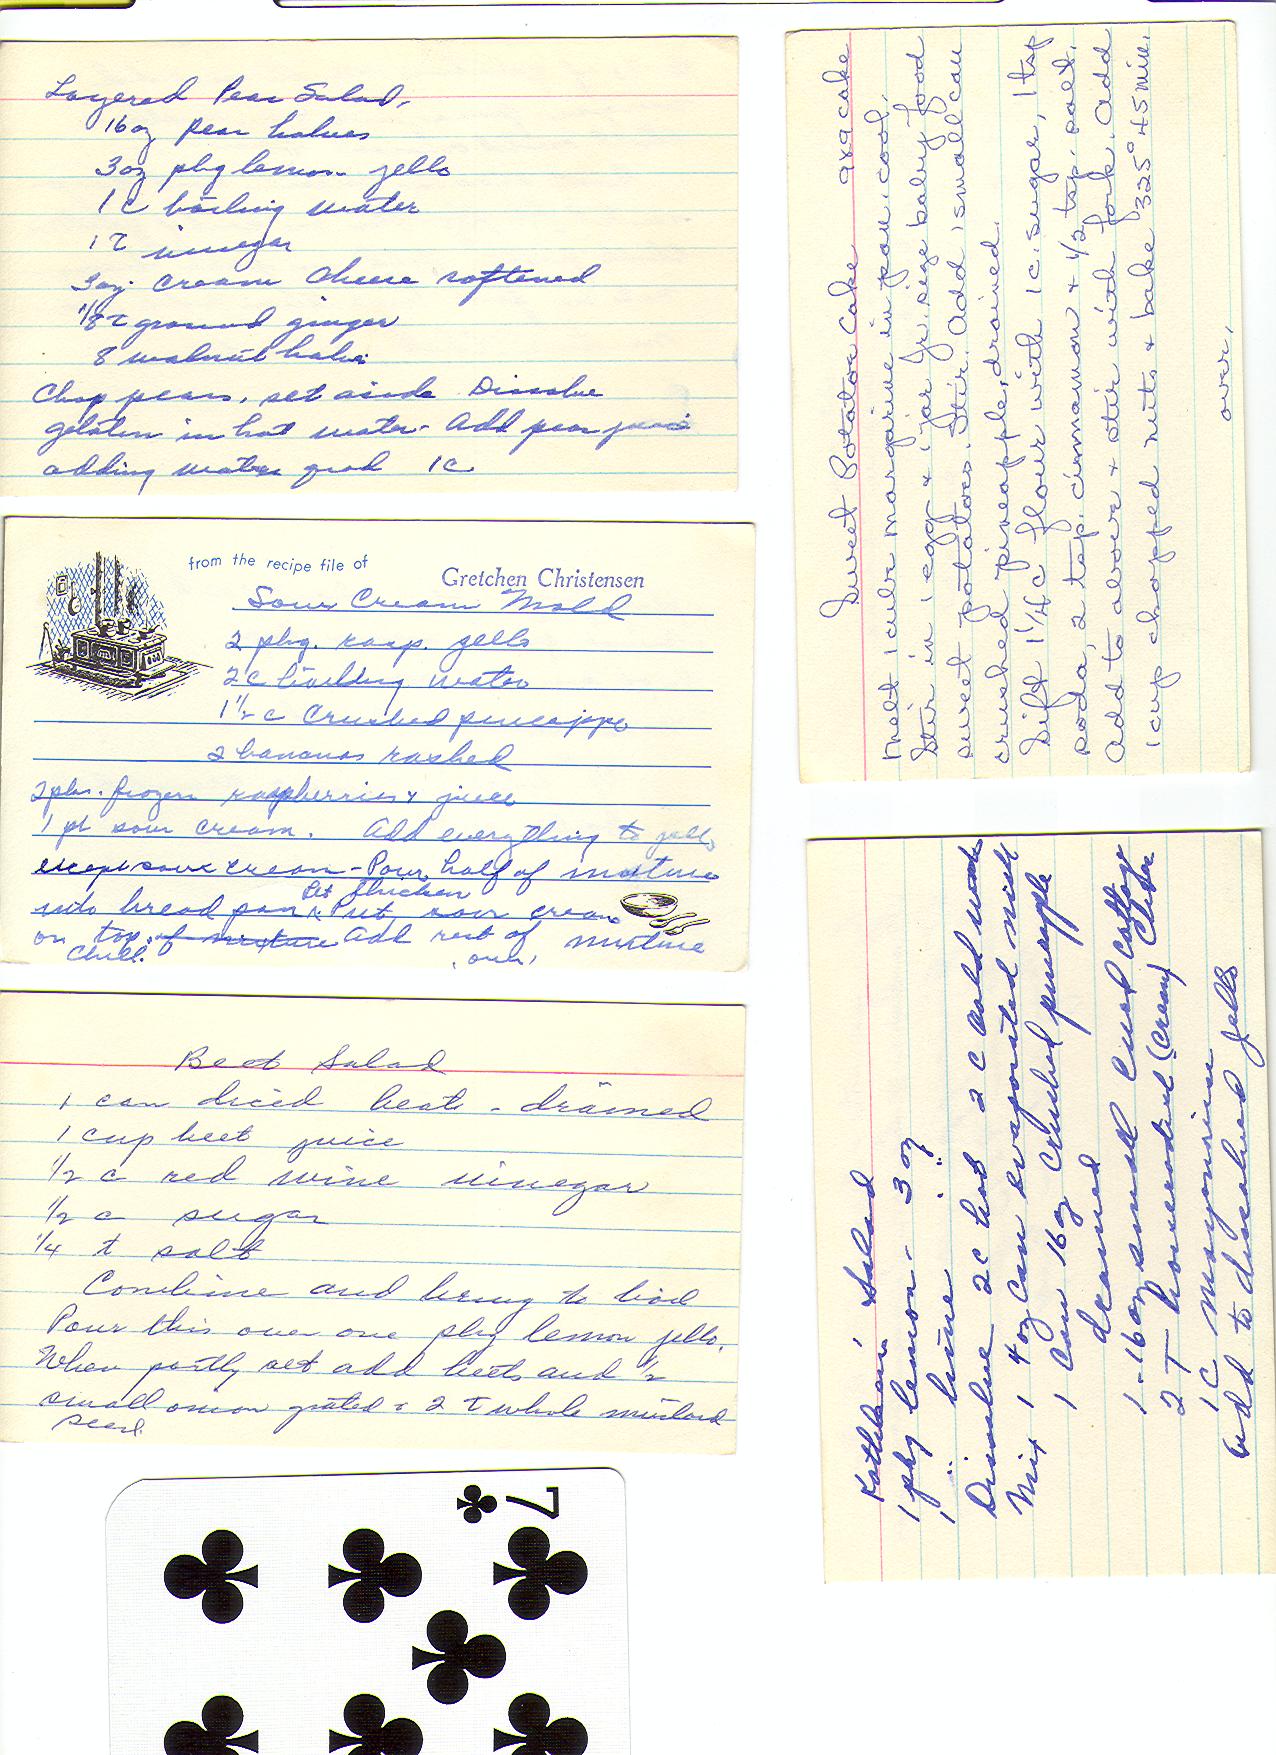 Layered Pear Salad.
16 oz pear halves
3 oz pkg lemon jello
1 c boiling water
1 T vinegar
3 oz. cream cheese softened
1/8 t ground ginger
8 walnut halves
Chop pears, set aside Dissolve
gelatin in hot water - Add pear juice
adding water 1c
from the recipe file of
Gretchen Christensen
Sour Cream Mold
2 pkg. rasp. jello
2 c boilding water
1 1/2 c crushed pineappe
2 bananas mashed
2 pks. frozen raspberries & juice
1 pt sour cream. Add everything to jello
except sour cream - Pour half of mixture
into bread pan & Let thicken Put sour cream
on top of mixture Add rest of mixture
Chill. over,
Beet Salad
1 can diced beets - drained
1 cup beet juice
1/2 c red wine vinegar
1/2 c sugar
1/4 t salt
Combine and bring to boil
Pour this over one pkg lemon jello.
When partly set add beets and 1/2
small onion grated & 2 T whole mustard
seed.
7
Sweet Potatoe Cake 9x9 cake
Melt 1 cube margarine in pan, cool.
Stir in 1 egg & 1 jar Jr. size baby food
sweet potatoes. Stir. Add 1 small can
crushed pineapple, drained.
Sift 1 1/4 c flour with 1 c. sugar, 1 tsp
soda, 2 tsp. cinnamon & 1/2 tsp. salt.
Add to above & stir with fork. Add
1 cup chopped nuts & bake 325° 45 min.
over.
Kathleen' Salad
1 pkg lemon - 3 oz
1 " lime " "
Dissolve 2c hot 2 c cold water
Mix 1 4 oz can evaporated milk
1 can 16 oz crushed pineapple
drained
1 - 16 oz small curd cottage
2 T horseradish (cream) Cheese
1 C mayonnise
add to dissolved jello